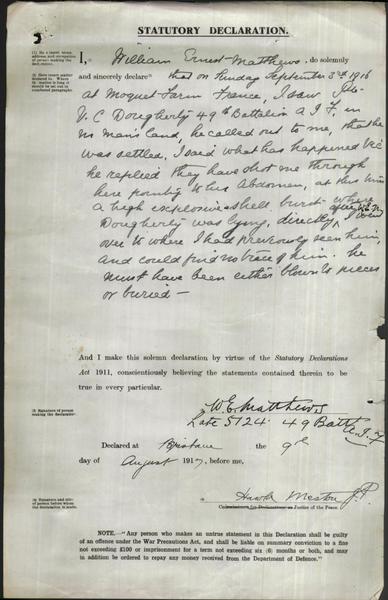 STATUTORY DECLARATION.
(1) Here insert name, address and occupation of person making the declaration.
I, William Ernest Matthews, do solemnly
(2) Here insert matter declared to. Where matter is long it should be set out in numbered paragraphs.
and sincerely declare that on Sunday September 3rd 1916
at Moquet Farm France, I saw Pte
V. C. Dougherty 49th Battalion A I F. in
No Mans land, he called out to me, that he
was settled. I said what has happened Vic
he replied they have shot me through
here pointing to his Abdomen, at this time
a high explosive shell burst where
Dougherty was lying, directly after this I went
over to where I had previously seen him,
and could find no trace of him. he
must have been either blown to pieces
or buried —
And I make this solemn declaration by virtue of the Statutory Declarations
Act 1911, conscientiously believing the statements contained therein to be
true in every particular.
(3) Signature of person making the declaration.
W E Matthews
Late 5124 49 Batt A.I.F
Declared at Brisbane the 9th
day of August 1917, before me,
(4) Signature and title of person before whom the declaration is made.
Meston J.P.
Commissioner for Declarations or Justice of the Peace.
NOTE.—"Any person who makes an untrue statement in this Declaration shall be guilty
of an offence under the War Precautions Act, and shall be liable on summary conviction to a fine
not exceeding £100 or imprisonment for a term not exceeding six (6) months or both, and may
in addition be ordered to repay any money received from the Department of Defence."